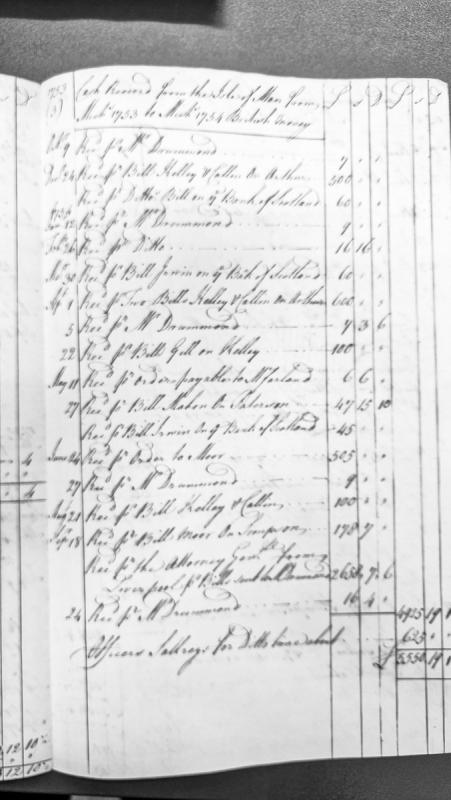 1753 Cash Received from the Isle of Man from £ s D £ s D
(3) Mich.s 1753 to Mich.s 1754 British money
Octr 9 Recd pr Mr Drummond 9 " "
24 Recd pr Bill Kelley & Callin On Arthur 500 " "
Recd pr Ditto Bill on ye Bank of Scotland 60 " "
12 Recd pr Mr Drummond 9 " "
Feb. 26 Recd pr Ditto 16 16 "
30 Recd pr Bill Irwin on ye Bank of Scotland 60 " "
1 Recd pr Two Bills Kelley & Callin on Arthur 600 " "
5 Recd pr Mr Drummond 9 3 6
22 Recd pr Bill Gill on Kelley 100 " "
May 11 Recd pr Order payable to Mcfarland 6 6 "
27 Recd pr Bill Mahon On Paterson 47 15 10
Recd pr Bill Irwin On ye Bank of Scotland 45 " "
June 24 Recd pr Order to Moor 505 " "
27 Recd pr Mr Drummond 9 " "
Aug 21 Recd pr Bill Kelley & Callin 100 " "
Sepr 18 Recd pr Bill Moor On 178 7 "
Recd pr the Attorney Genl from
Liverpool pr Bills sent to 2650 7 6
24 Recd pr Mr Drummond 16 4 "
4925 19
625 " "
Officers Sallreys for Ditto time about
£ 5550 19
4
4
12 10
12 10